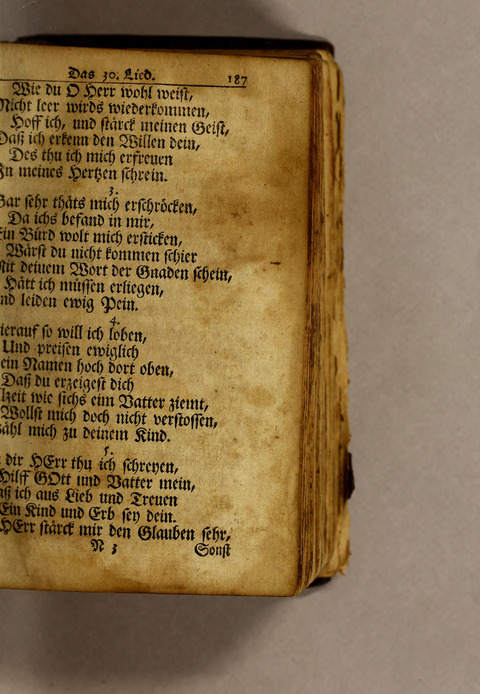 Das 30. Lied. 187
Wie du O Herr wohl weist,
Nicht leer wirds wiederkommen,
Hoff ich, und stärck meinen Geist,
Daß ich erkenn den Willen dein,
Des thu ich mich erfreuen
In meines Hertzen schrein.
3.
Gar sehr thäts mich erschröcken,
Da ichs befand in mir,
Ein Bürd wolt mich ersticken,
Wärst du nicht kommen schier
Mit deinem Wort der Gnaden schein,
Hätt ich müssen erliegen,
Und leiden ewig Pein.
4.
ierauf so will ich loben,
Und preisen ewiglich
ein Namen hoch dort oben,
Daß du erzeigest dich
lzeit wie sichs eim Vatter ziemt,
Wollst mich doch nicht verstossen,
zähl mich zu deinem Kind.
5.
dir HErr thu ich schreyen,
Hilff GOtt und Vatter mein,
aß ich aus Lieb und Treuen
Ein Kind und Erb sey dein.
HErr stärck mir den Glauben sehr,
N 3 Sonst